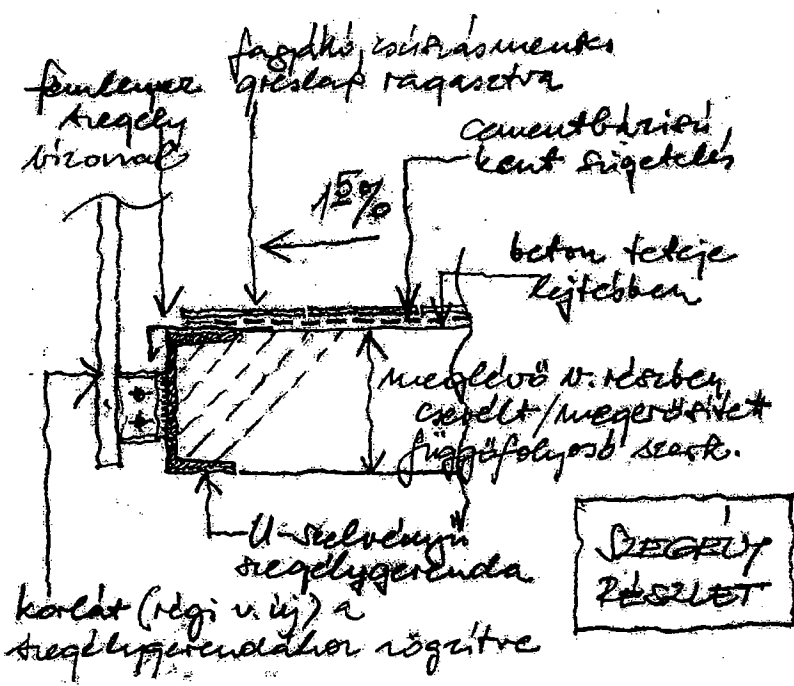 fagyálló csúszásmentes
greslap ragasztva
fémlemez
szegély
bizonnal
cementbázisú
kent szigetelés
1,5%
beton teteje
lejtésben
meglévő v. részben
cserélt/megerősített
függőfolyosó szerk.
U-szelvényű
szegélygerenda
korlát (régi v. új) a
szegélygerendához rögzítve
SZEGÉLY
RÉSZLET